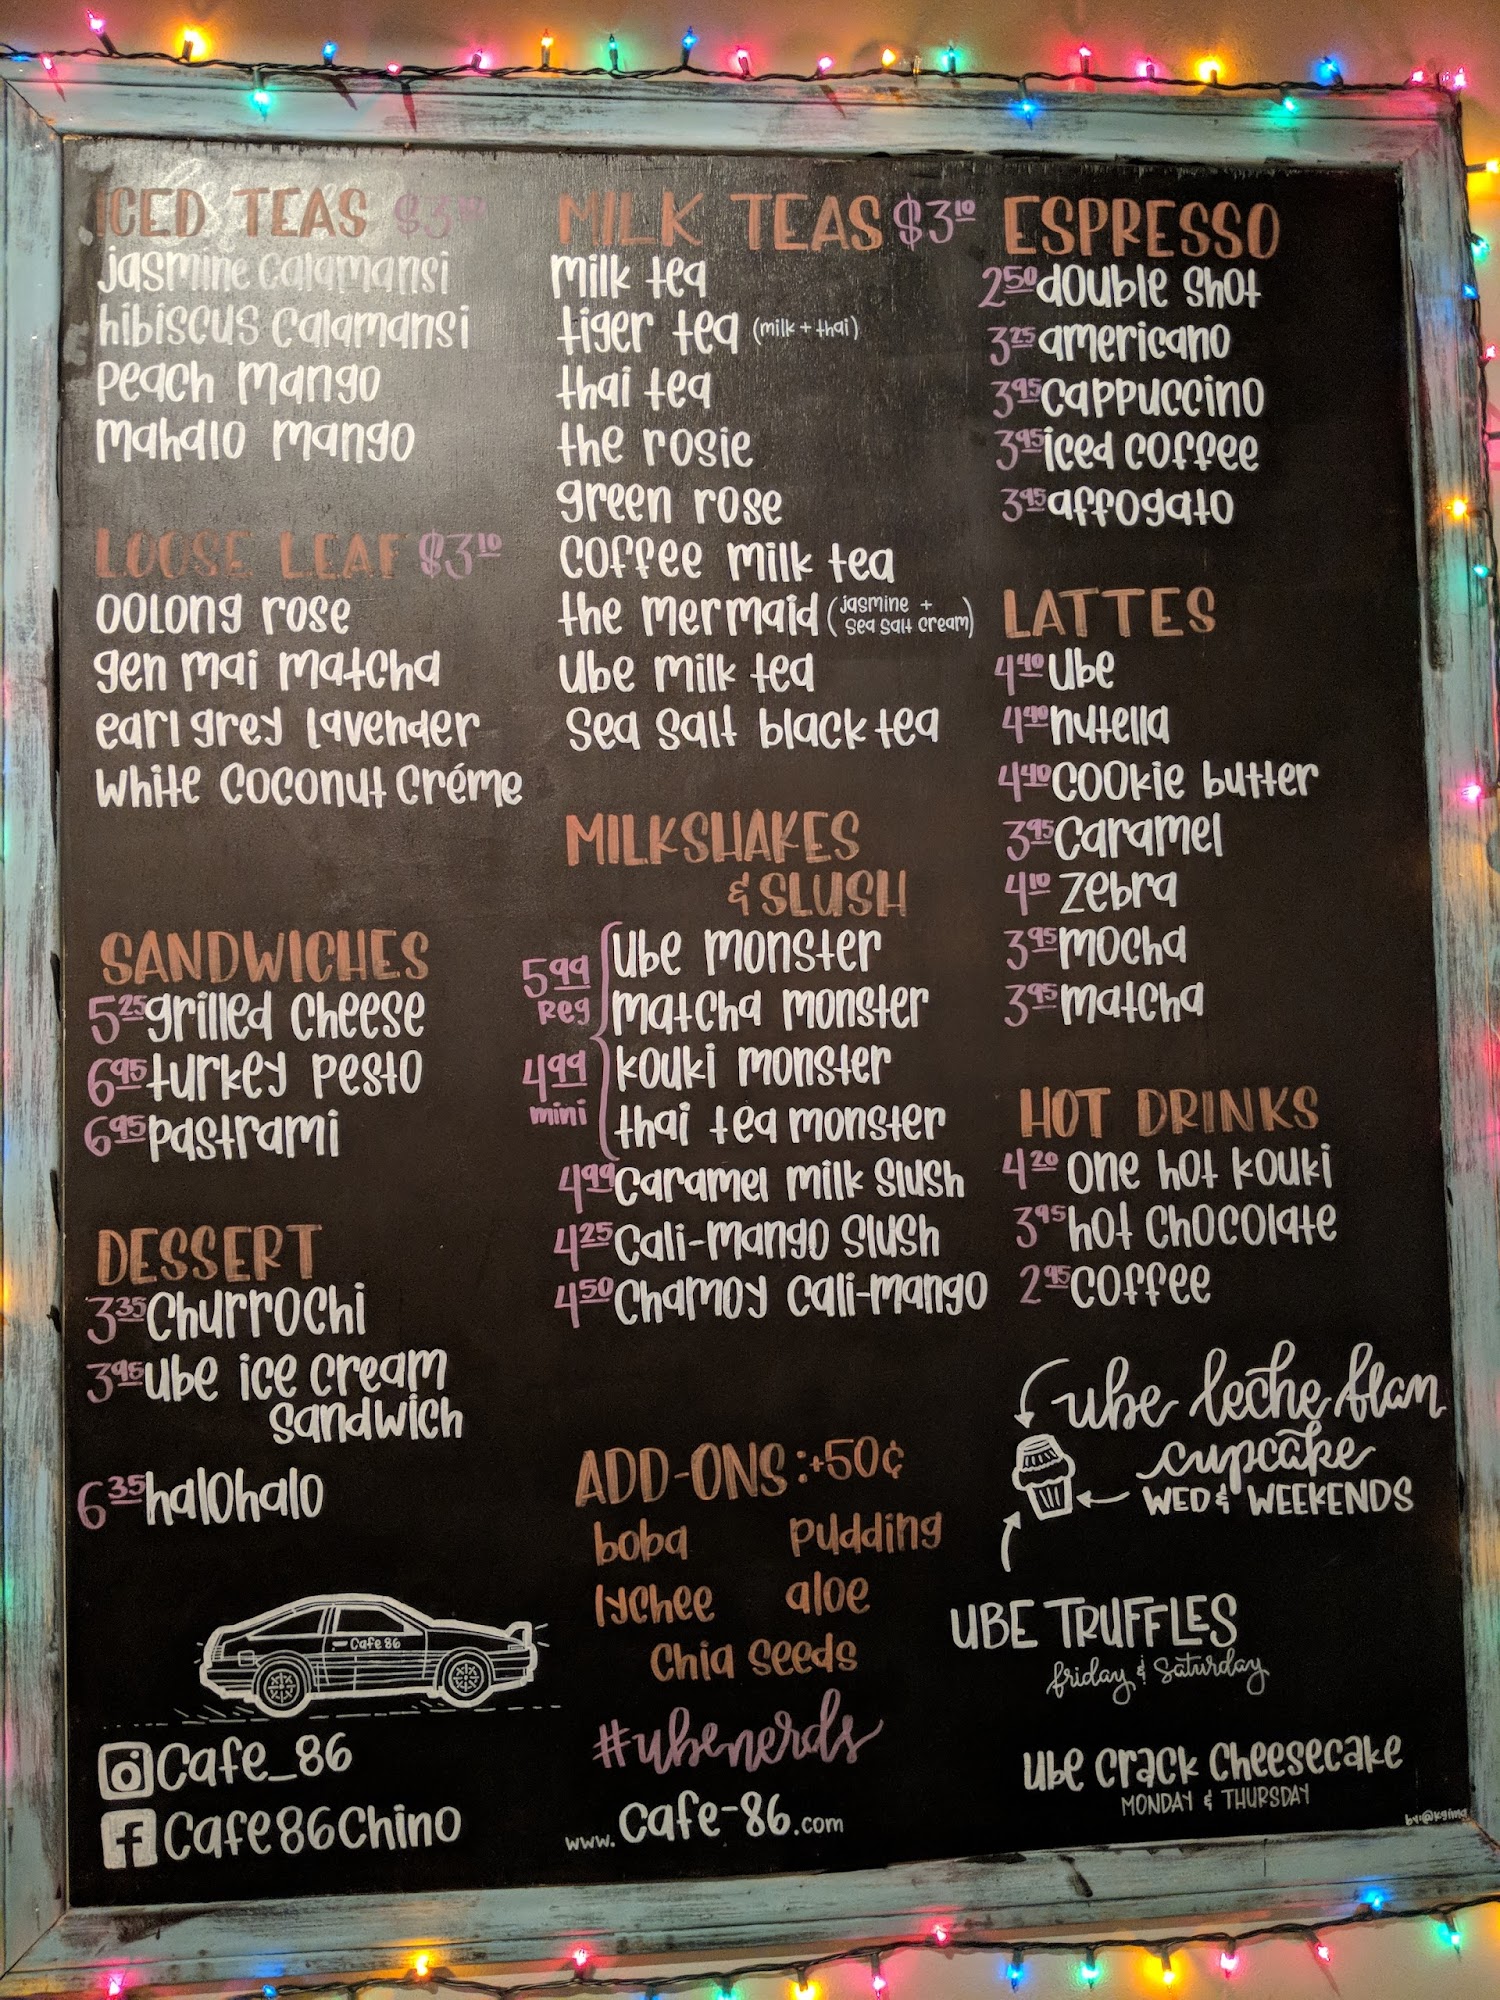 ICED TEAS $3.10
jasmine calamansi
hibiscus calamansi
peach mango
mahalo mango
LOOSE LEAF $3.10
oolong rose
gen mai matcha
earl grey lavender
white coconut créme
SANDWICHES
5.25 grilled cheese
6.95 turkey pesto
6.95 pastrami
DESSERT
3.35 churrochi
3.95 ube ice cream
sandwich
6.35 halohalo
Cafe 86
Cafe_86
Cafe86Chino
MILK TEAS $3.10
milk tea
tiger tea (milk + thai)
thai tea
the rosie
green rose
coffee milk tea
the mermaid (jasmine +
sea salt cream)
ube milk tea
sea salt black tea
MILKSHAKES
& SLUSH
5.99 Reg
4.99 mini
ube monster
matcha monster
kouki monster
thai tea monster
4.99 caramel milk slush
4.25 cali-mango slush
4.50 chamoy cali-mango
ADD-ONS: +50¢
boba pudding
lychee aloe
chia seeds
#ubenerds
www.cafe-86.com
ESPRESSO
2.50 double shot
3.25 americano
3.95 cappuccino
3.95 iced coffee
3.95 affogato
LATTES
4.40 ube
4.40 nutella
4.40 cookie butter
3.95 caramel
4.10 zebra
3.95 mocha
3.95 matcha
HOT DRINKS
4.20 one hot kouki
3.95 hot chocolate
2.95 coffee
ube leche flan
cupcake
WED & WEEKENDS
UBE TRUFFLES
friday & saturday
ube crack cheesecake
MONDAY & THURSDAY